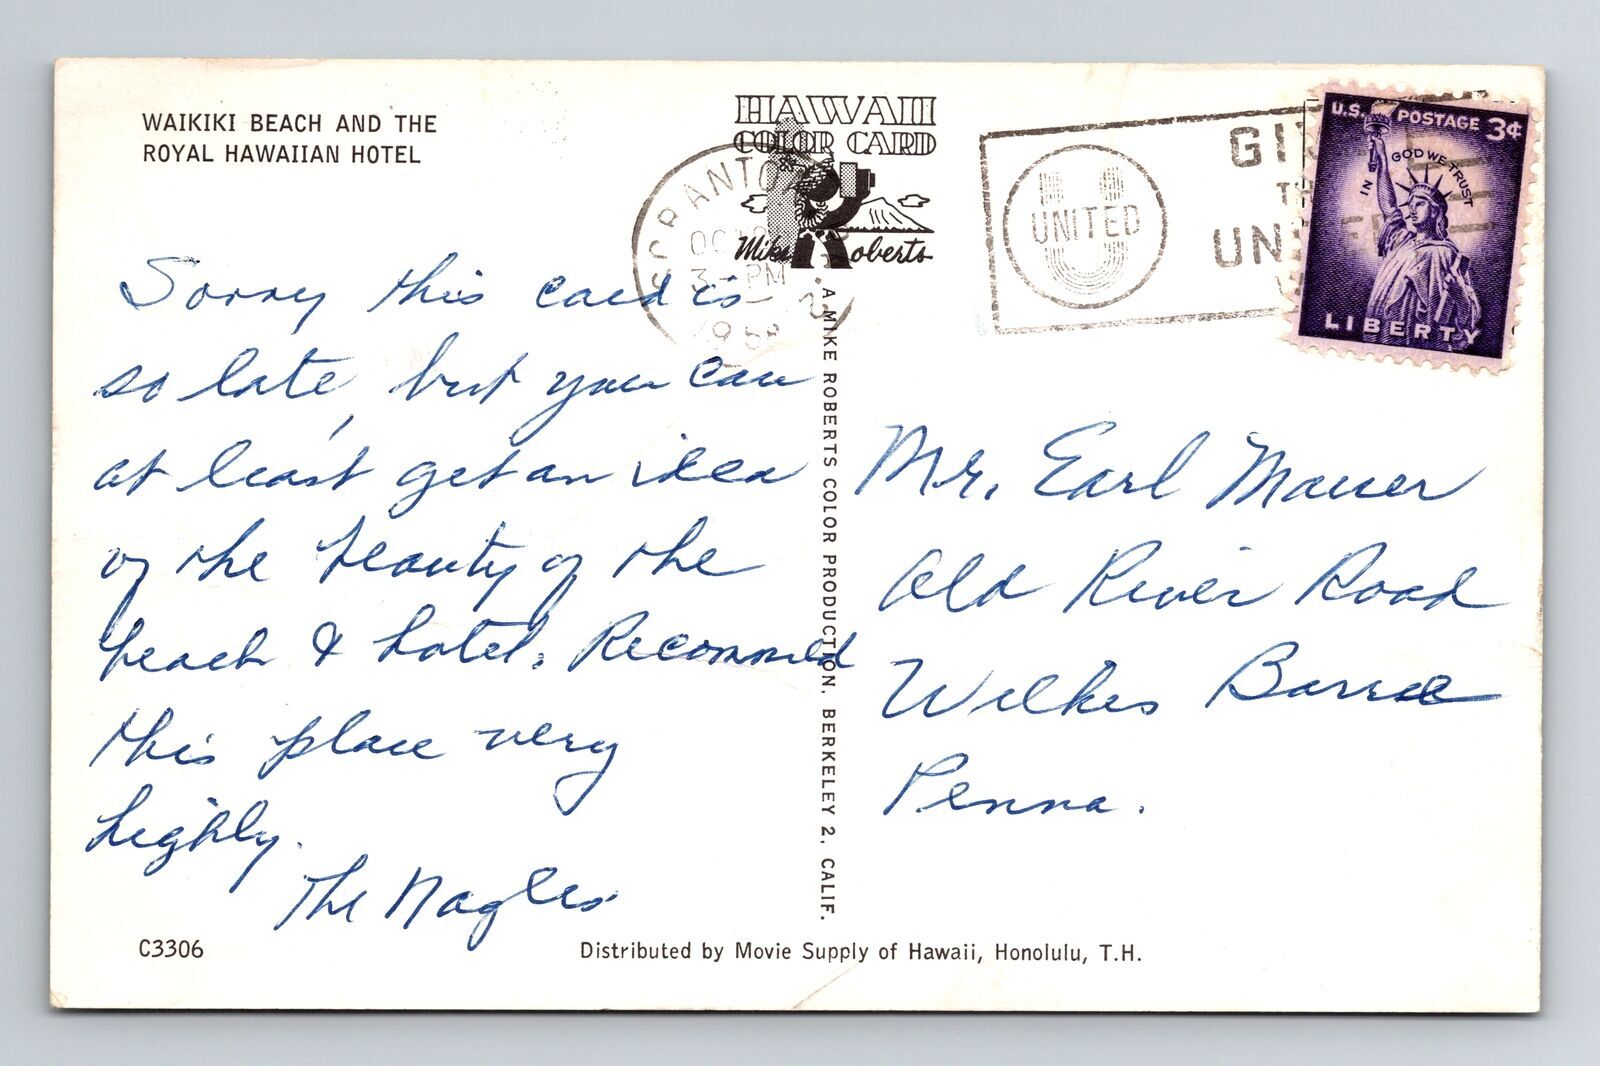 WAIKIKI BEACH AND THE
ROYAL HAWAIIAN HOTEL
HAWAII
COLOR CARD
Mike Roberts
SCRANTON
OCT
3 - PM
1958
UNITED
GIV
TH
UNITED
U.S. POSTAGE 3¢
IN GOD WE TRUST
LIBERTY
Sorry this card is
so late, but you can
at least get an idea
of the beauty of the
beach & hotel. Recommend
this place very
highly.
The Nagles
A MIKE ROBERTS COLOR PRODUCTION. BERKELEY 2, CALIF.
Mr. Earl Mauer
Old River Road
Wilkes Barre
Penna.
C3306
Distributed by Movie Supply of Hawaii, Honolulu, T.H.